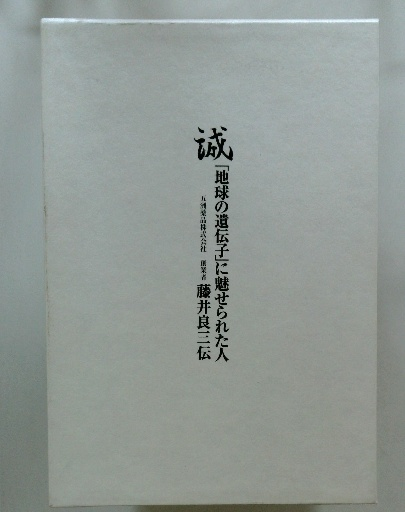 誠
「地球の遺伝子」に魅せられた人
五洲薬品株式会社 創業者 藤井良三伝